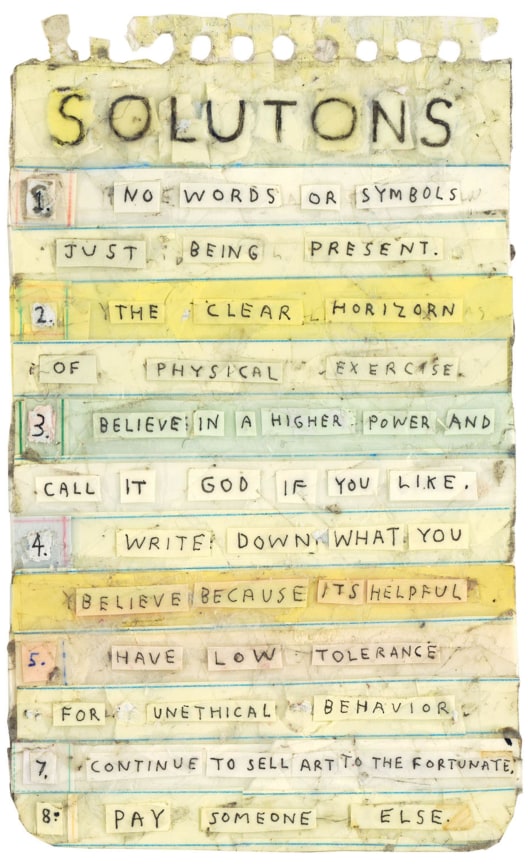 SOLUTONS
1. NO WORDS OR SYMBOLS
JUST BEING PRESENT.
2. THE CLEAR HORIZORN
OF PHYSICAL EXERCISE.
3. BELIEVE IN A HIGHER POWER AND
CALL IT GOD IF YOU LIKE.
4. WRITE DOWN WHAT YOU
BELIEVE BECAUSE ITS HELPFUL.
5. HAVE LOW TOLERANCE
FOR UNETHICAL BEHAVIOR.
7. CONTINUE TO SELL ART TO THE FORTUNATE.
8. PAY SOMEONE ELSE.